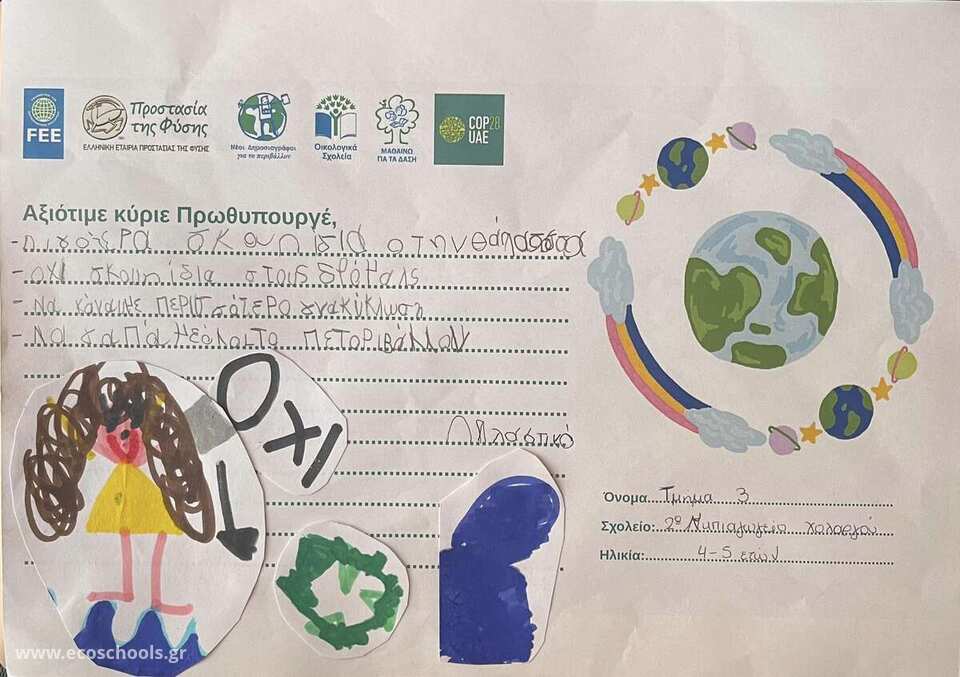 FEE
Προστασία
της Φύσης
ΕΛΛΗΝΙΚΗ ΕΤΑΙΡΙΑ ΠΡΟΣΤΑΣΙΑΣ ΤΗΣ ΦΥΣΗΣ
Νέοι Δημοσιογράφοι
για το περιβάλλον
Οικολογικά
Σχολεία
ΜΑΘΑΙΝΩ
ΓΙΑ ΤΑ ΔΑΣΗ
COP28
UAE
Αξιότιμε κύριε Πρωθυπουργέ,
- σκουπιδια στην θάλασσα
- οχι σκουπίδια στους
- Να ανακύκλωση
- Να
ΟΧΙ
Πλαστικό
Όνομα: Τμημα 3
Σχολείο: 2ο Νηπιαγωγειο χολαργού
Ηλικία: 4-5 ετών
www.ecoschools.gr